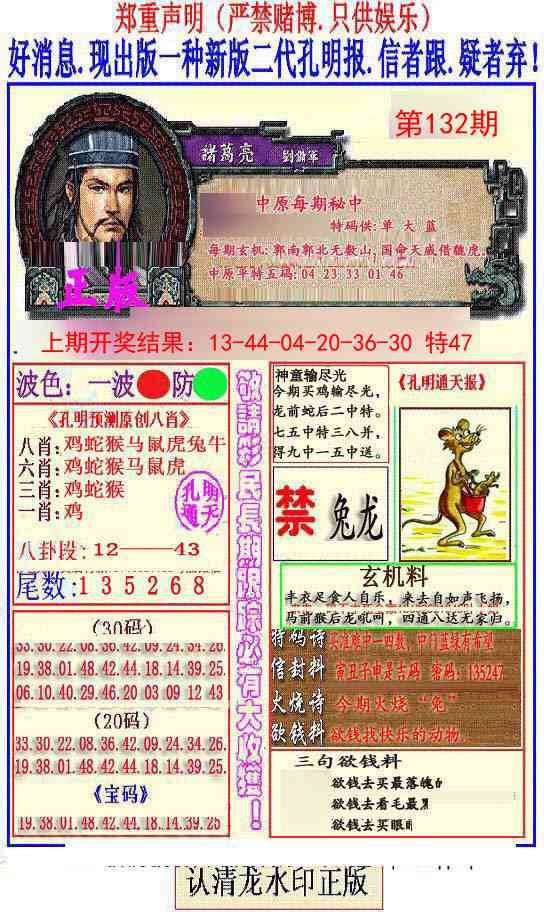 郑重声明（严禁赌博.只供娱乐）
好消息.现出版一种新版二代孔明报.信者跟.疑者弃！
第132期
諸葛亮 劉備軍
中原每期秘中
特码供:单 大 蓝
每期玄机:郭南郭北无数山,国命天威借魏虎.
中原平特五码:04 23 33 01 46
正版
上期开奖结果：13-44-04-20-36-30 特47
波色：一波 防
《孔明预测原创八肖》
八肖:鸡蛇猴马鼠虎兔牛
六肖:鸡蛇猴马鼠虎
三肖:鸡蛇猴
一肖:鸡
孔明
通天
八卦段:12——43
尾数:135268
(30码)
33.30.22.08.36.42.09.24.34.26
19.38.01.48.42.44.18.14.39.25
06.10.40.29.46.20.03.09.12.43
(20码)
33.30.22.08.36.42.09.24.34.26.
19.38.01.48.42.44.18.14.39.25.
《宝码》
19.38.01.48.42.44.18.14.39.25
敬請彩民長期跟踪必有大收獲！
神童输尽光
今期买鸡输尽光,
龙前蛇后二中特。
七五中特三八并,
得九中一五中送。
禁 兔龙
《孔明通天报》
玄机料
丰衣足食人自乐，来去自如声飞扬,
马前猴后龙吼叫，四通八达无家归。
特码诗 买注期中一四数，中行蓝绿有希望
信封料 寅丑子申是吉码 密码：135247
火烧诗 今期火烧“兔”
欲钱料 欲钱找快乐的动物.
三句欲钱料
欲钱去买最落魄
欲钱去看毛最
欲钱去买眼
认清龙水印正版